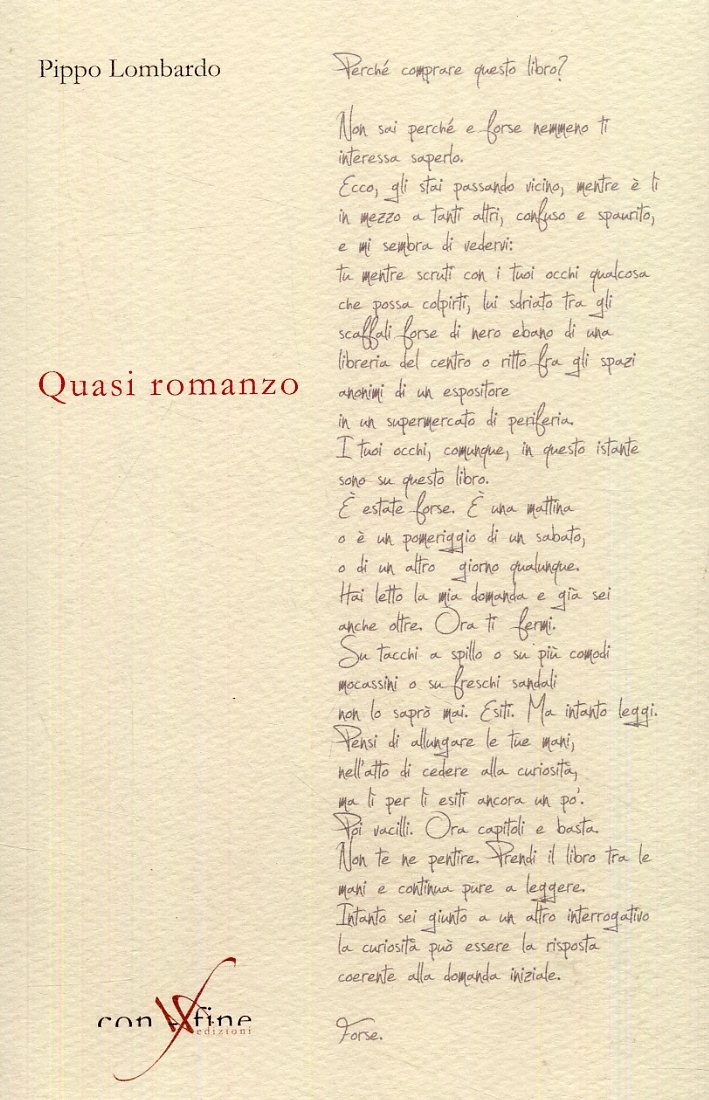 Pippo Lombardo
Quasi romanzo
Perché comprare questo libro?
Non sai perché e forse nemmeno ti
interessa saperlo.
Ecco, gli stai passando vicino, mentre è lì
in mezzo a tanti altri, confuso e spaurito,
e mi sembra di vedervi:
tu mentre scruti con i tuoi occhi qualcosa
che possa colpirti, lui sdriato tra gli
scaffali forse di nero ebano di una
libreria del centro o ritto fra gli spazi
anonimi di un espositore
in un supermercato di periferia.
I tuoi occhi, comunque, in questo istante
sono su questo libro.
È estate forse. È una mattina
o è un pomeriggio di un sabato,
o di un altro giorno qualunque.
Hai letto la mia domanda e già sei
anche oltre. Ora ti fermi.
Su tacchi a spillo o su più comodi
mocassini o su freschi sandali
non lo saprò mai. Esiti. Ma intanto leggi.
Pensi di allungare le tue mani,
nell'atto di cedere alla curiosità,
ma lì per lì esiti ancora un po'.
Poi vacilli. Ora capitoli e basta.
Non te ne pentire. Prendi il libro tra le
mani e continua pure a leggere.
Intanto sei giunto a un altro interrogativo
la curiosità può essere la risposta
coerente alla domanda iniziale.
Forse.
con fine
edizioni